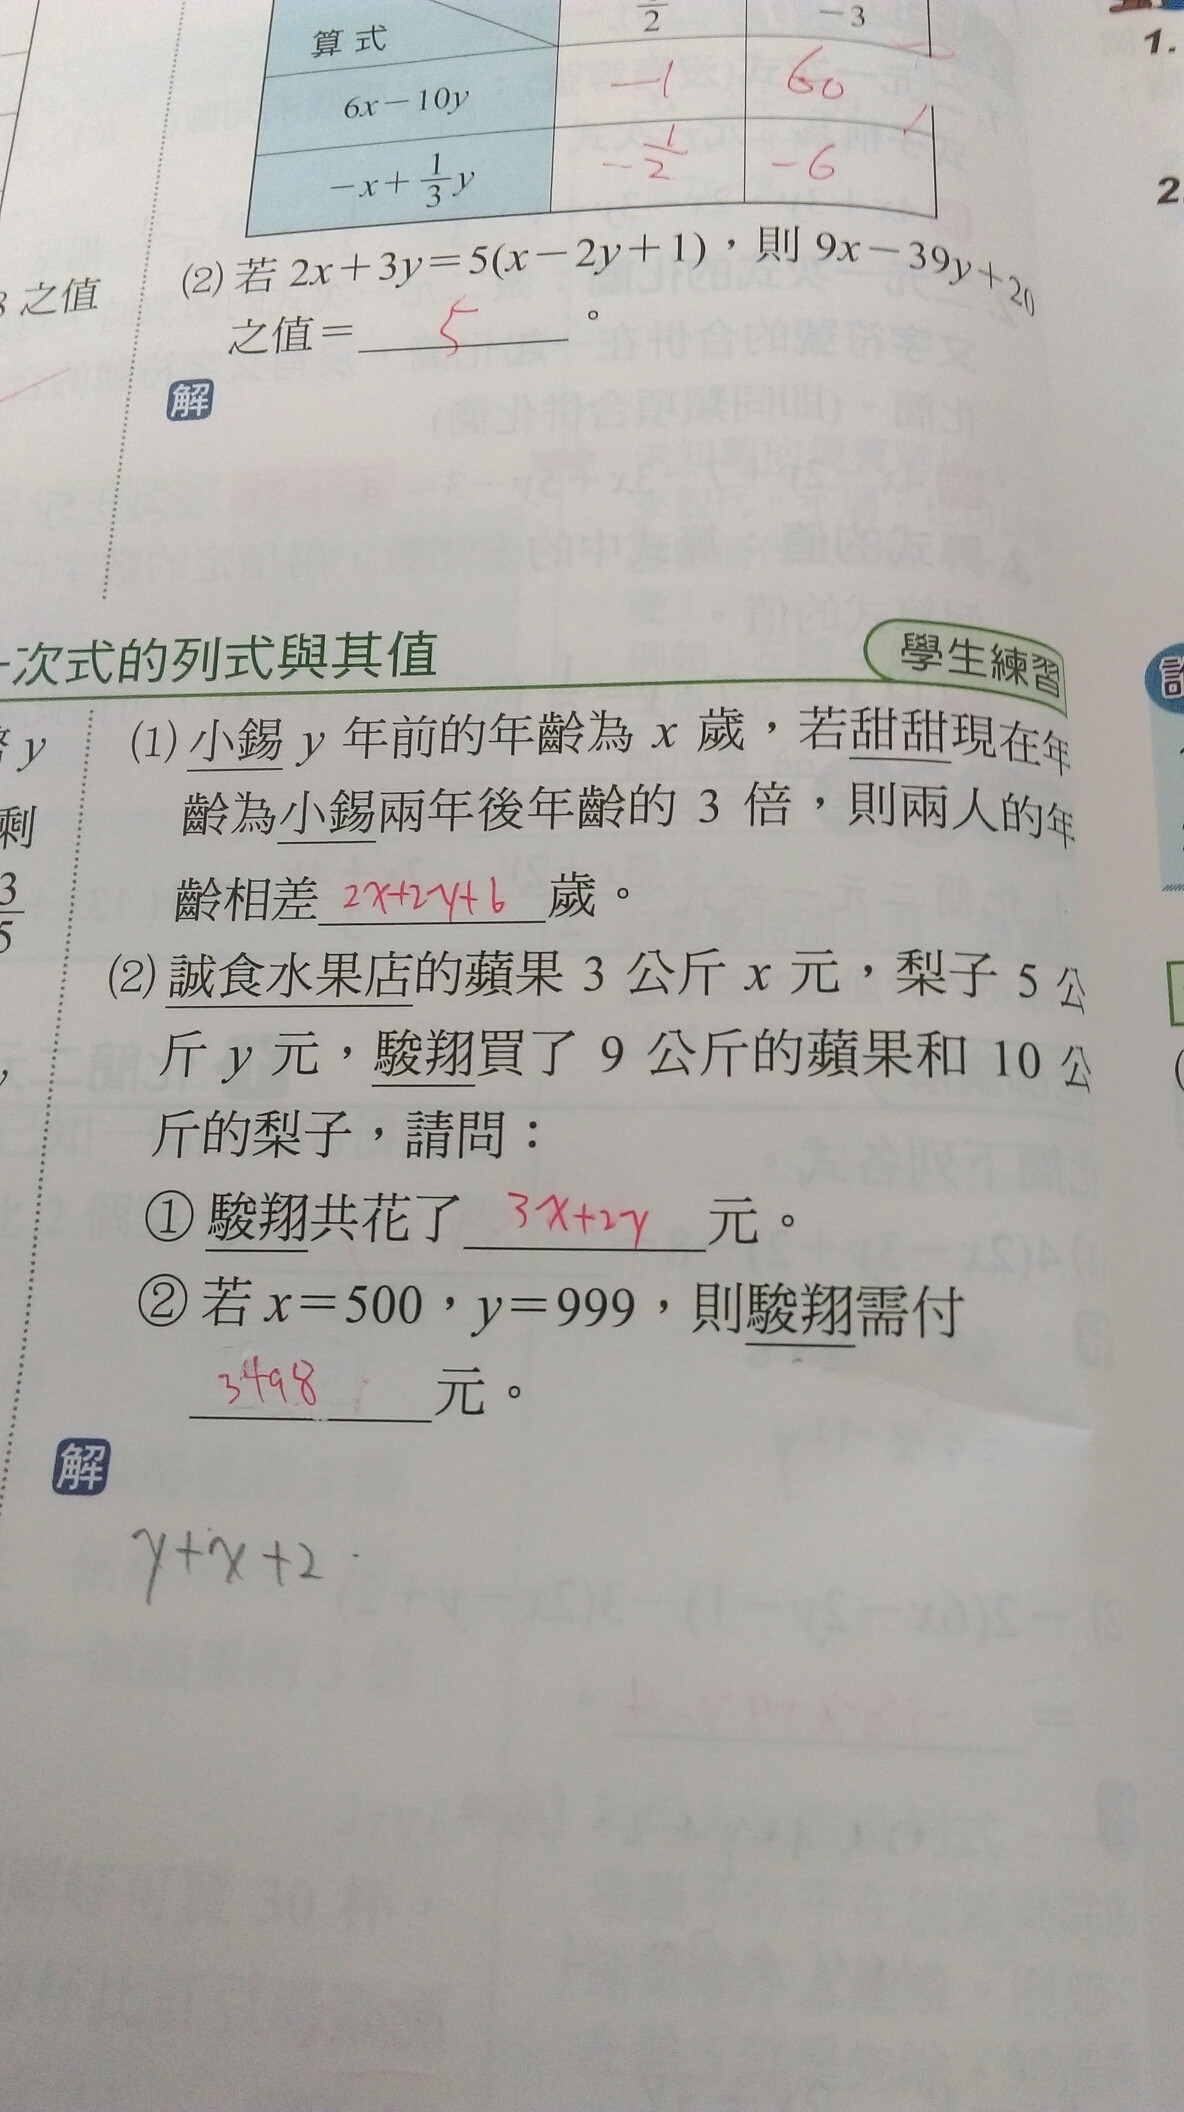 算式
2
-3
6x-10y
-1
60
-x+1/3y
-1/2
-6
(2) 若 2x+3y=5(x-2y+1)，則 9x-39y+20
之值= 5 。
之值
解
次式的列式與其值
學生練習
(1) 小錫 y 年前的年齡為 x 歲，若甜甜現在年
齡為小錫兩年後年齡的 3 倍，則兩人的年
齡相差 2x+2y+6 歲。
(2) 誠食水果店的蘋果 3 公斤 x 元，梨子 5 公
斤 y 元，駿翔買了 9 公斤的蘋果和 10 公
斤的梨子，請問：
① 駿翔共花了 3x+2y 元。
② 若 x=500，y=999，則駿翔需付
3498 元。
解
y+x+2
y
剩
3/5
1.
2.